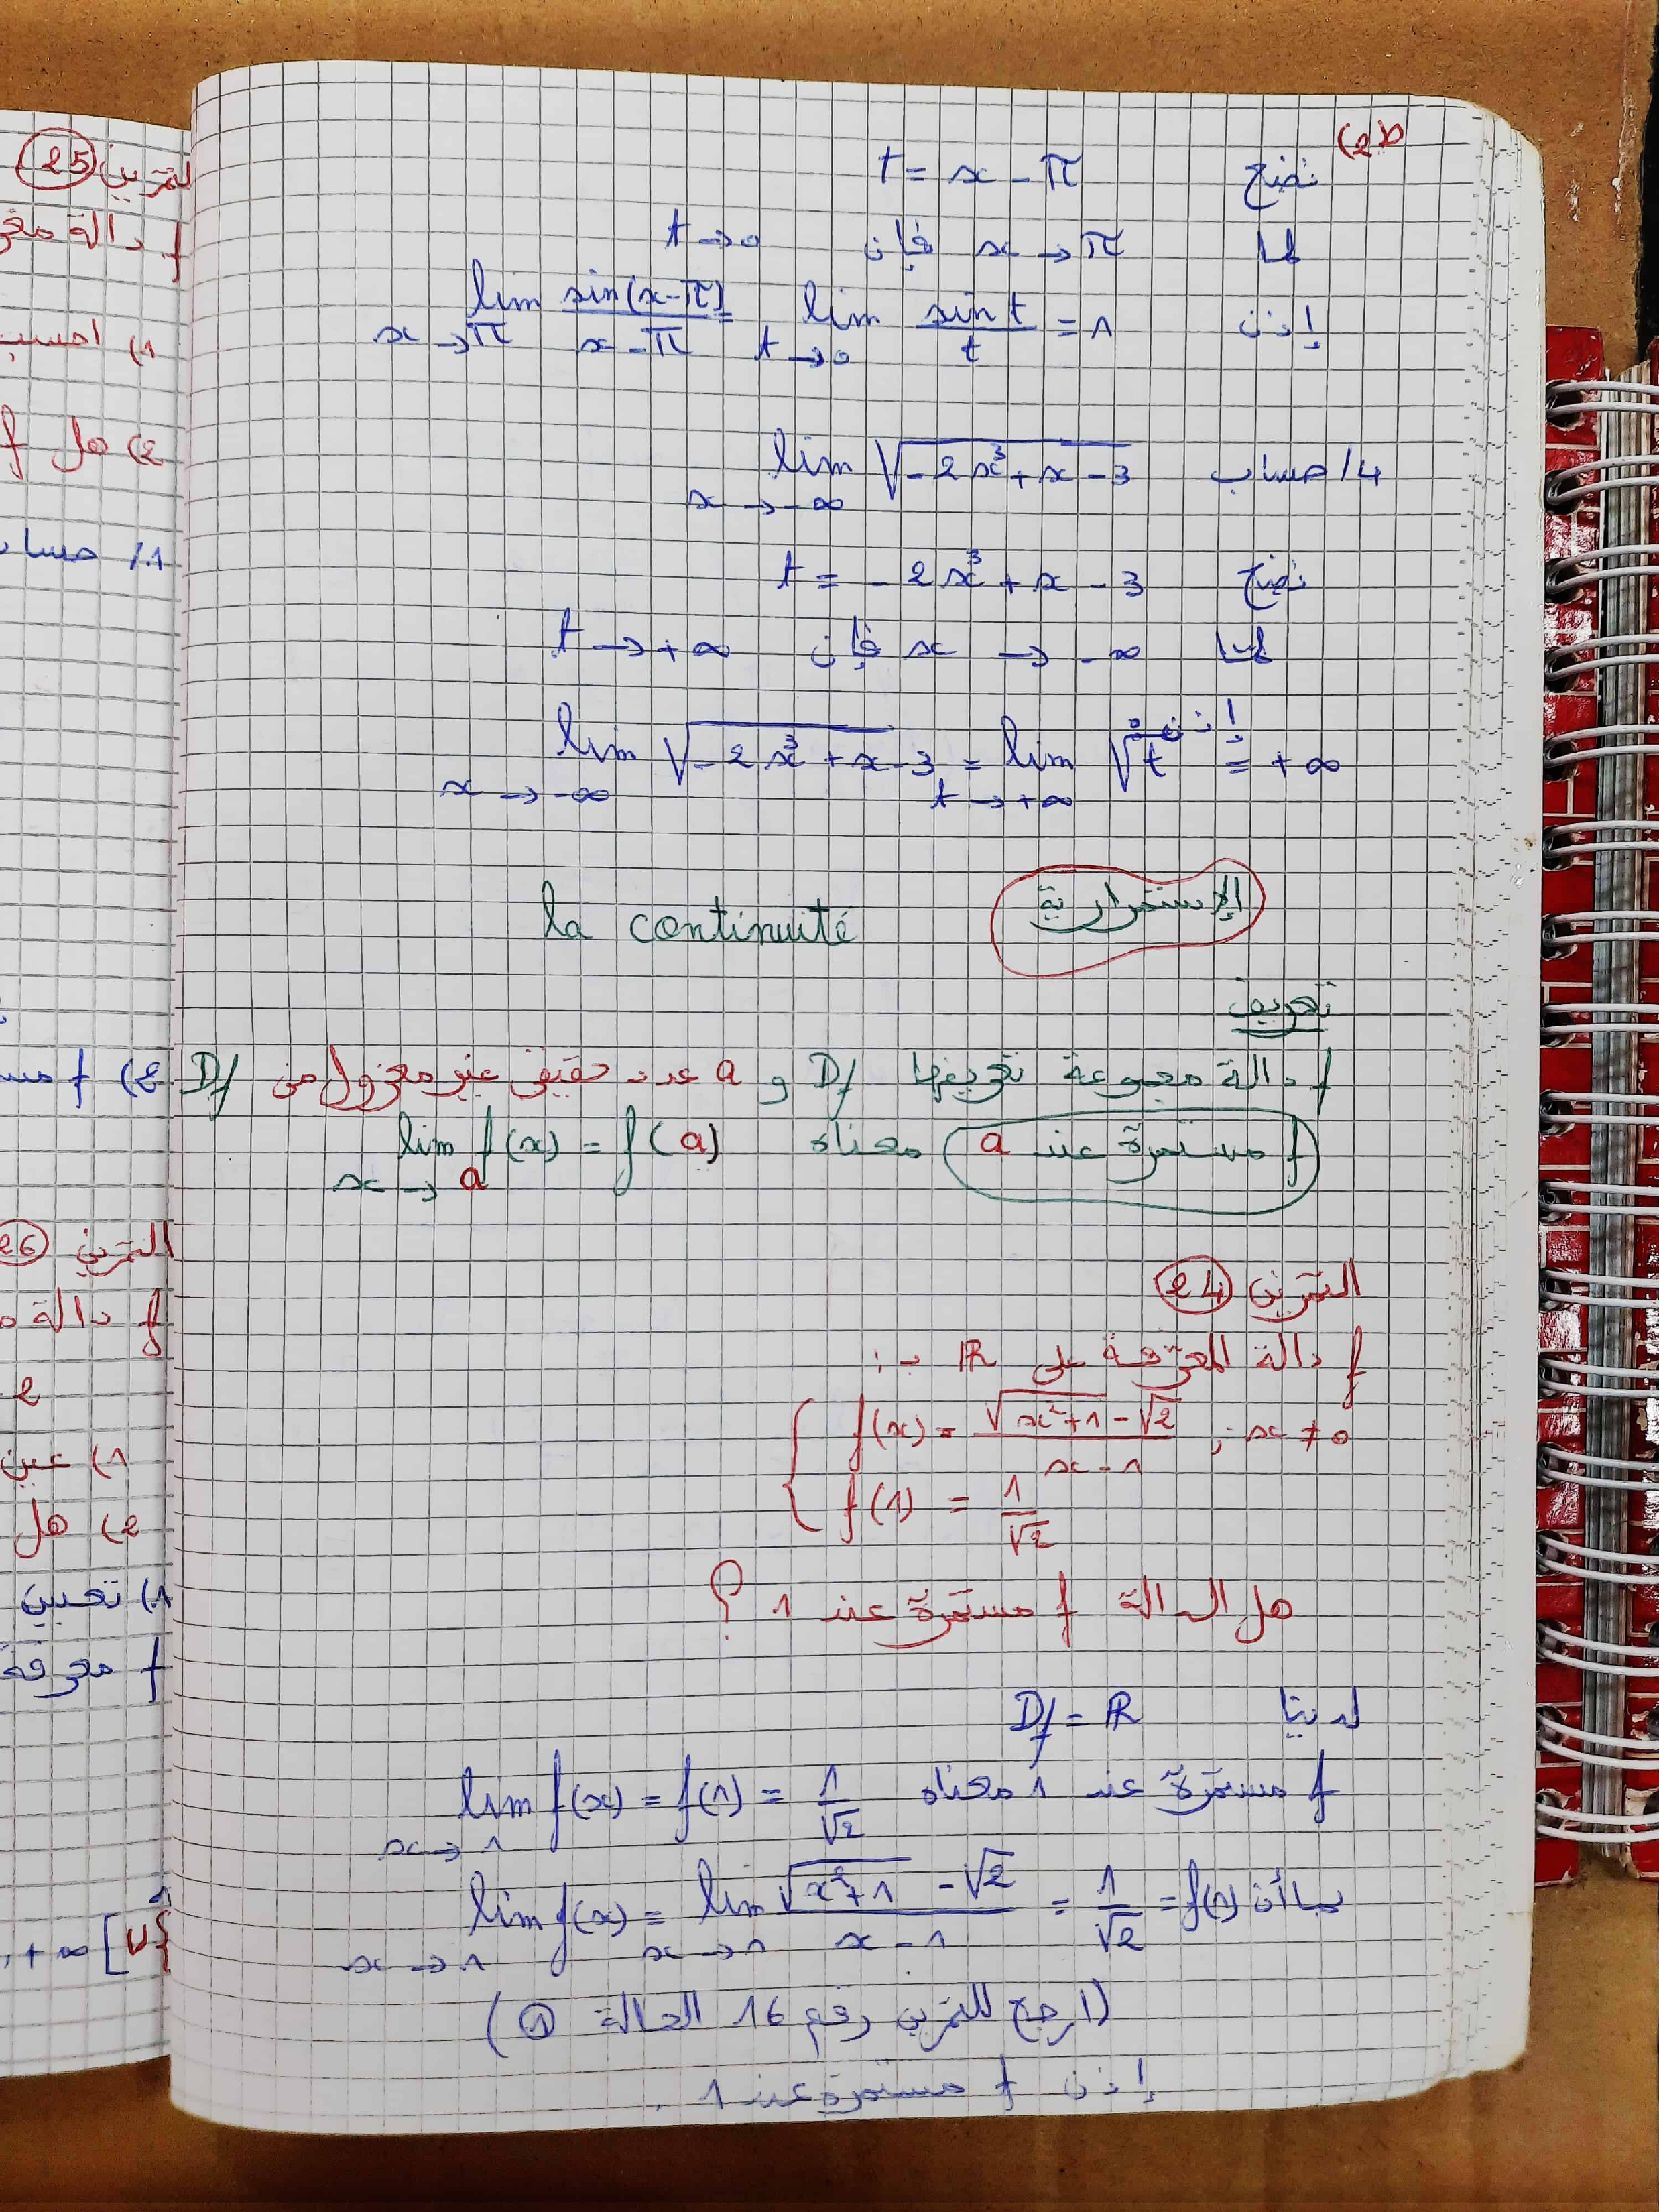 ط2)
نضع t = x - π
لما x → π فإن t → 0
إذن lim x→π sin(x-π)/(x-π) = lim t→0 sin t/t = 1
4/ حساب lim x→-∞ √(-2x³+x-3)
نضع t = -2x³ + x - 3
لما x → -∞ فإن t → +∞
إذن
lim x→-∞ √(-2x³+x-3) = lim t→+∞ √t = +∞
الإستمرارية la continuité
تعريف
f دالة مجموعة تعريفها Df و a عدد حقيقي غير معزول من Df
f مستمرة عند a معناه lim x→a f(x) = f(a)
التمرين 24
f دالة المعرّفة على ℝ بـ :
f(x) = (√(x²+1) - √2)/(x-1) ; x ≠ 0
f(1) = 1/√2
هل الدالة f مستمرة عند 1 ؟
لدينا Df = ℝ
f مستمرة عند 1 معناه lim x→1 f(x) = f(1) = 1/√2
بما أن lim x→1 f(x) = lim x→1 (√(x²+1) - √2)/(x-1) = 1/√2 = f(1)
(ارجع للتمرين رقم 16 الحالة 1)
إذن f مستمرة عند 1 .
التمرين 25
f دالة
1) احسب
2) هل f
1/ حساب
2) f
التمرين 26
f دالة
2
1) عين
2) هل
1) تعيين
f معرفة
, +∞[ ∪ {1